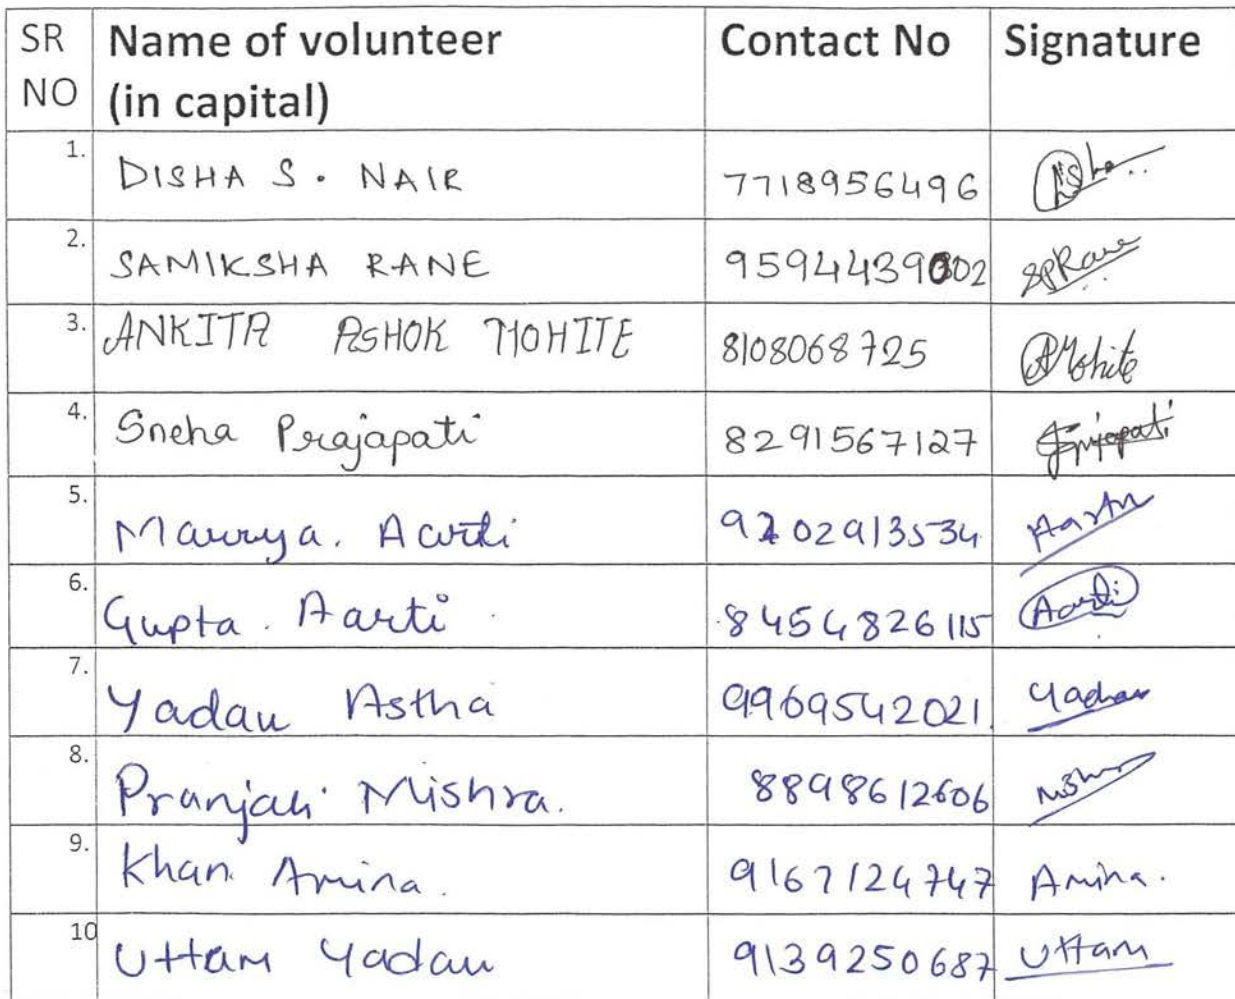 SR NO Name of volunteer (in capital) Contact No Signature
1. DISHA S. NAIR 7718956496
2. SAMIKSHA RANE SPRane
3. ANKITA ASHOK MOHITE 8108068725 AMohite
4. Sneha Prajapati 8291567127 Prajapati
5. Maurya. Aarti Aarti
6. Gupta. Aarti 8454826115 Aarti
7. Yadav Astha 9969542021 Yadav
8. Pranjali Mishra. 8898612606
9. Khan Amina. 9167124747 Amina.
10 Uttam Yadav 9139250687 Uttam